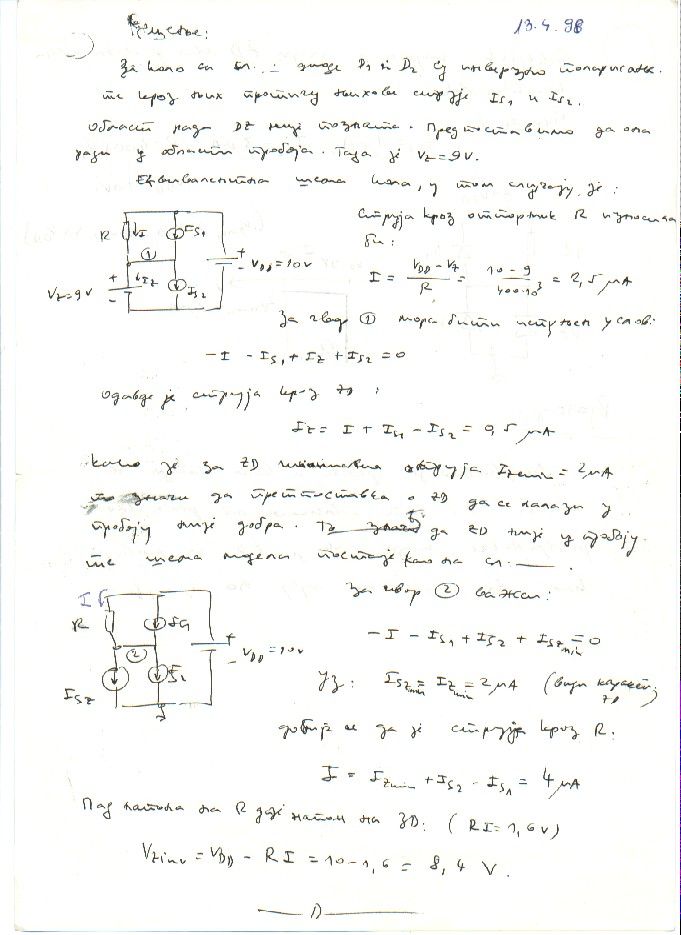 Решење:
13.4.98
За коло са сл. диоде D₁ и D₂ су инверзно поларисане.
те кроз њих протичу њихове струје Is₁ и Is₂.
Област рада DZ није позната. Претпоставимо да она
ради у области пробоја. Тада је Vz=9V.
Еквивалентна шема кола, у том случају, је:
Струја кроз отпорник R износила
би:
R I Is₁
①
Iz Is₂
Vz=9V
+ -
+ - VDD=10V
I = (VDD-Vz)/R = (10-9)/(400·10³) = 2,5 μA
За чвор ① мора бити испуњен услов:
-I - Is₁ + Iz + Is₂ = 0
Одавде је струја кроз ZD:
Iz = I + Is₁ - Is₂ = 0,5 μA
Како је за ZD струја Izmin = 2μA
то значи да претпоставка о ZD да се налази у
пробоју није добра. да ZD није у пробоју
те шема модела постаје као на сл. ___.
I
R
②
Isz
+ - VDD=10V
За чвор ② важи:
-I - Is₁ + Is₂ + Iszmin = 0
Уз: Iszmin = Izmin = 2μA (види ZD)
добија се да је струја кроз R:
I = Izmin + Is₂ - Is₁ = 4μA
Пад напона на R даје напон на ZD: (RI=1,6V)
Vzinv = VDD - RI = 10-1,6 = 8,4 V.